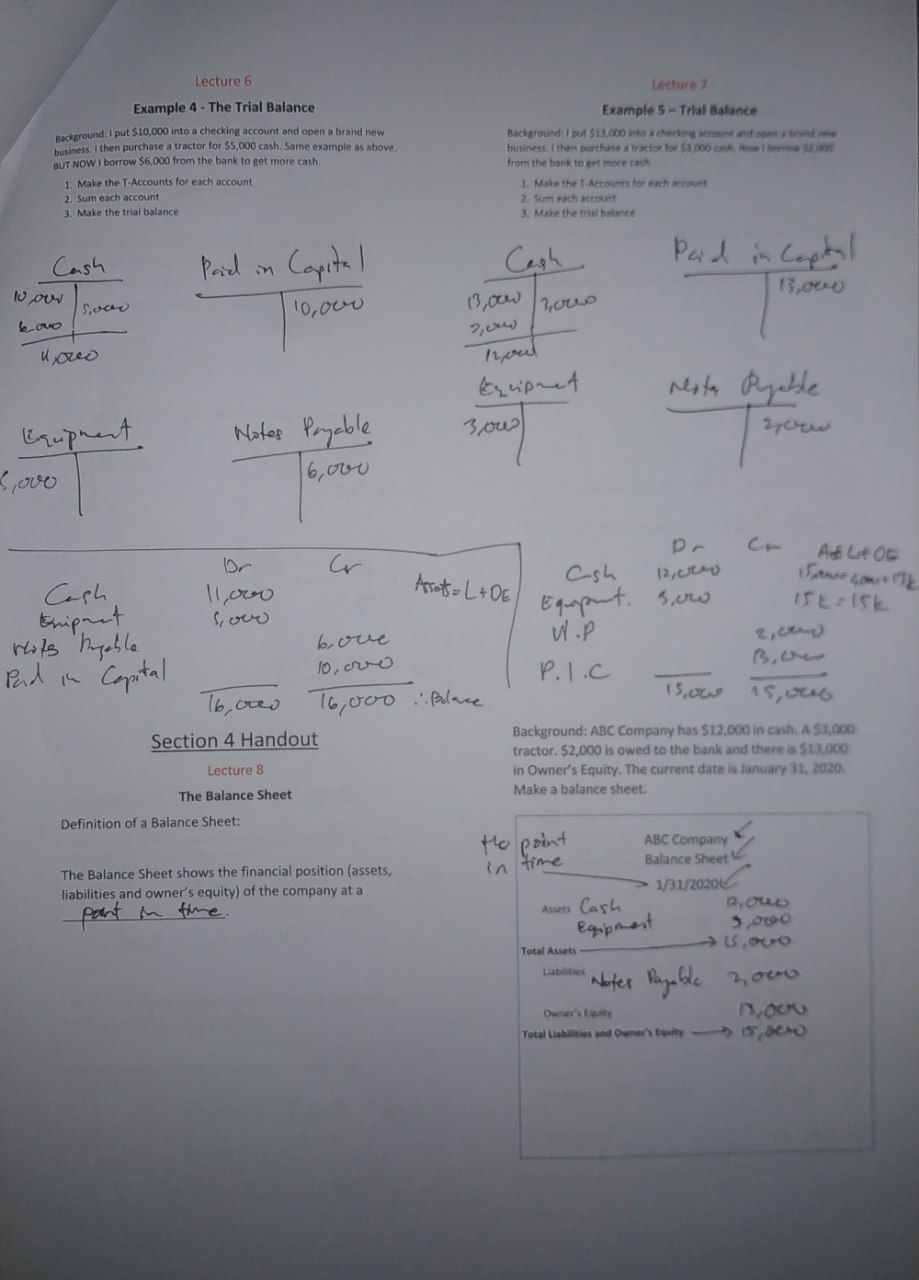 Lecture 6
Example 4 - The Trial Balance
Background: I put $10,000 into a checking account and open a brand new
business. I then purchase a tractor for $5,000 cash. Same example as above.
BUT NOW I borrow $6,000 from the bank to get more cash.
1. Make the T-Accounts for each account
2. Sum each account
3. Make the trial balance
Cash
10,000 5,000
6,000
11,000
Paid in Capital
10,000
Equipment
5,000
Notes Payable
6,000
Dr Cr
Cash 11,000
Equipment 5,000
Notes Payable 6,000
Paid in Capital 10,000
16,000 16,000 ∴ Balance
Assets = L + OE
Lecture 7
Example 5 – Trial Balance
Background: I put $13,000 into a checking account and open a brand new
business. I then purchase a tractor for $3,000 cash. Now I borrow $2,000
from the bank to get more cash.
1. Make the T-Accounts for each account
2. Sum each account
3. Make the trial balance
Cash
13,000 3,000
2,000
12,000
Paid in Capital
13,000
Equipment
3,000
Notes Payable
2,000
Dr Cr
Cash 12,000
Equipment. 3,000
N.P 2,000
P.I.C 13,000
15,000 15,000
A = L + OE
15k = 15k
Section 4 Handout
Lecture 8
The Balance Sheet
Definition of a Balance Sheet:
The Balance Sheet shows the financial position (assets,
liabilities and owner's equity) of the company at a
point in time.
Background: ABC Company has $12,000 in cash. A $3,000
tractor. $2,000 is owed to the bank and there is $13,000
in Owner's Equity. The current date is January 31, 2020.
Make a balance sheet.
point
in time
ABC Company
Balance Sheet
1/31/2020
Assets Cash 12,000
Equipment 3,000
Total Assets 15,000
Liabilities Notes Payable 2,000
Owner's Equity 13,000
Total Liabilities and Owner's Equity 15,000